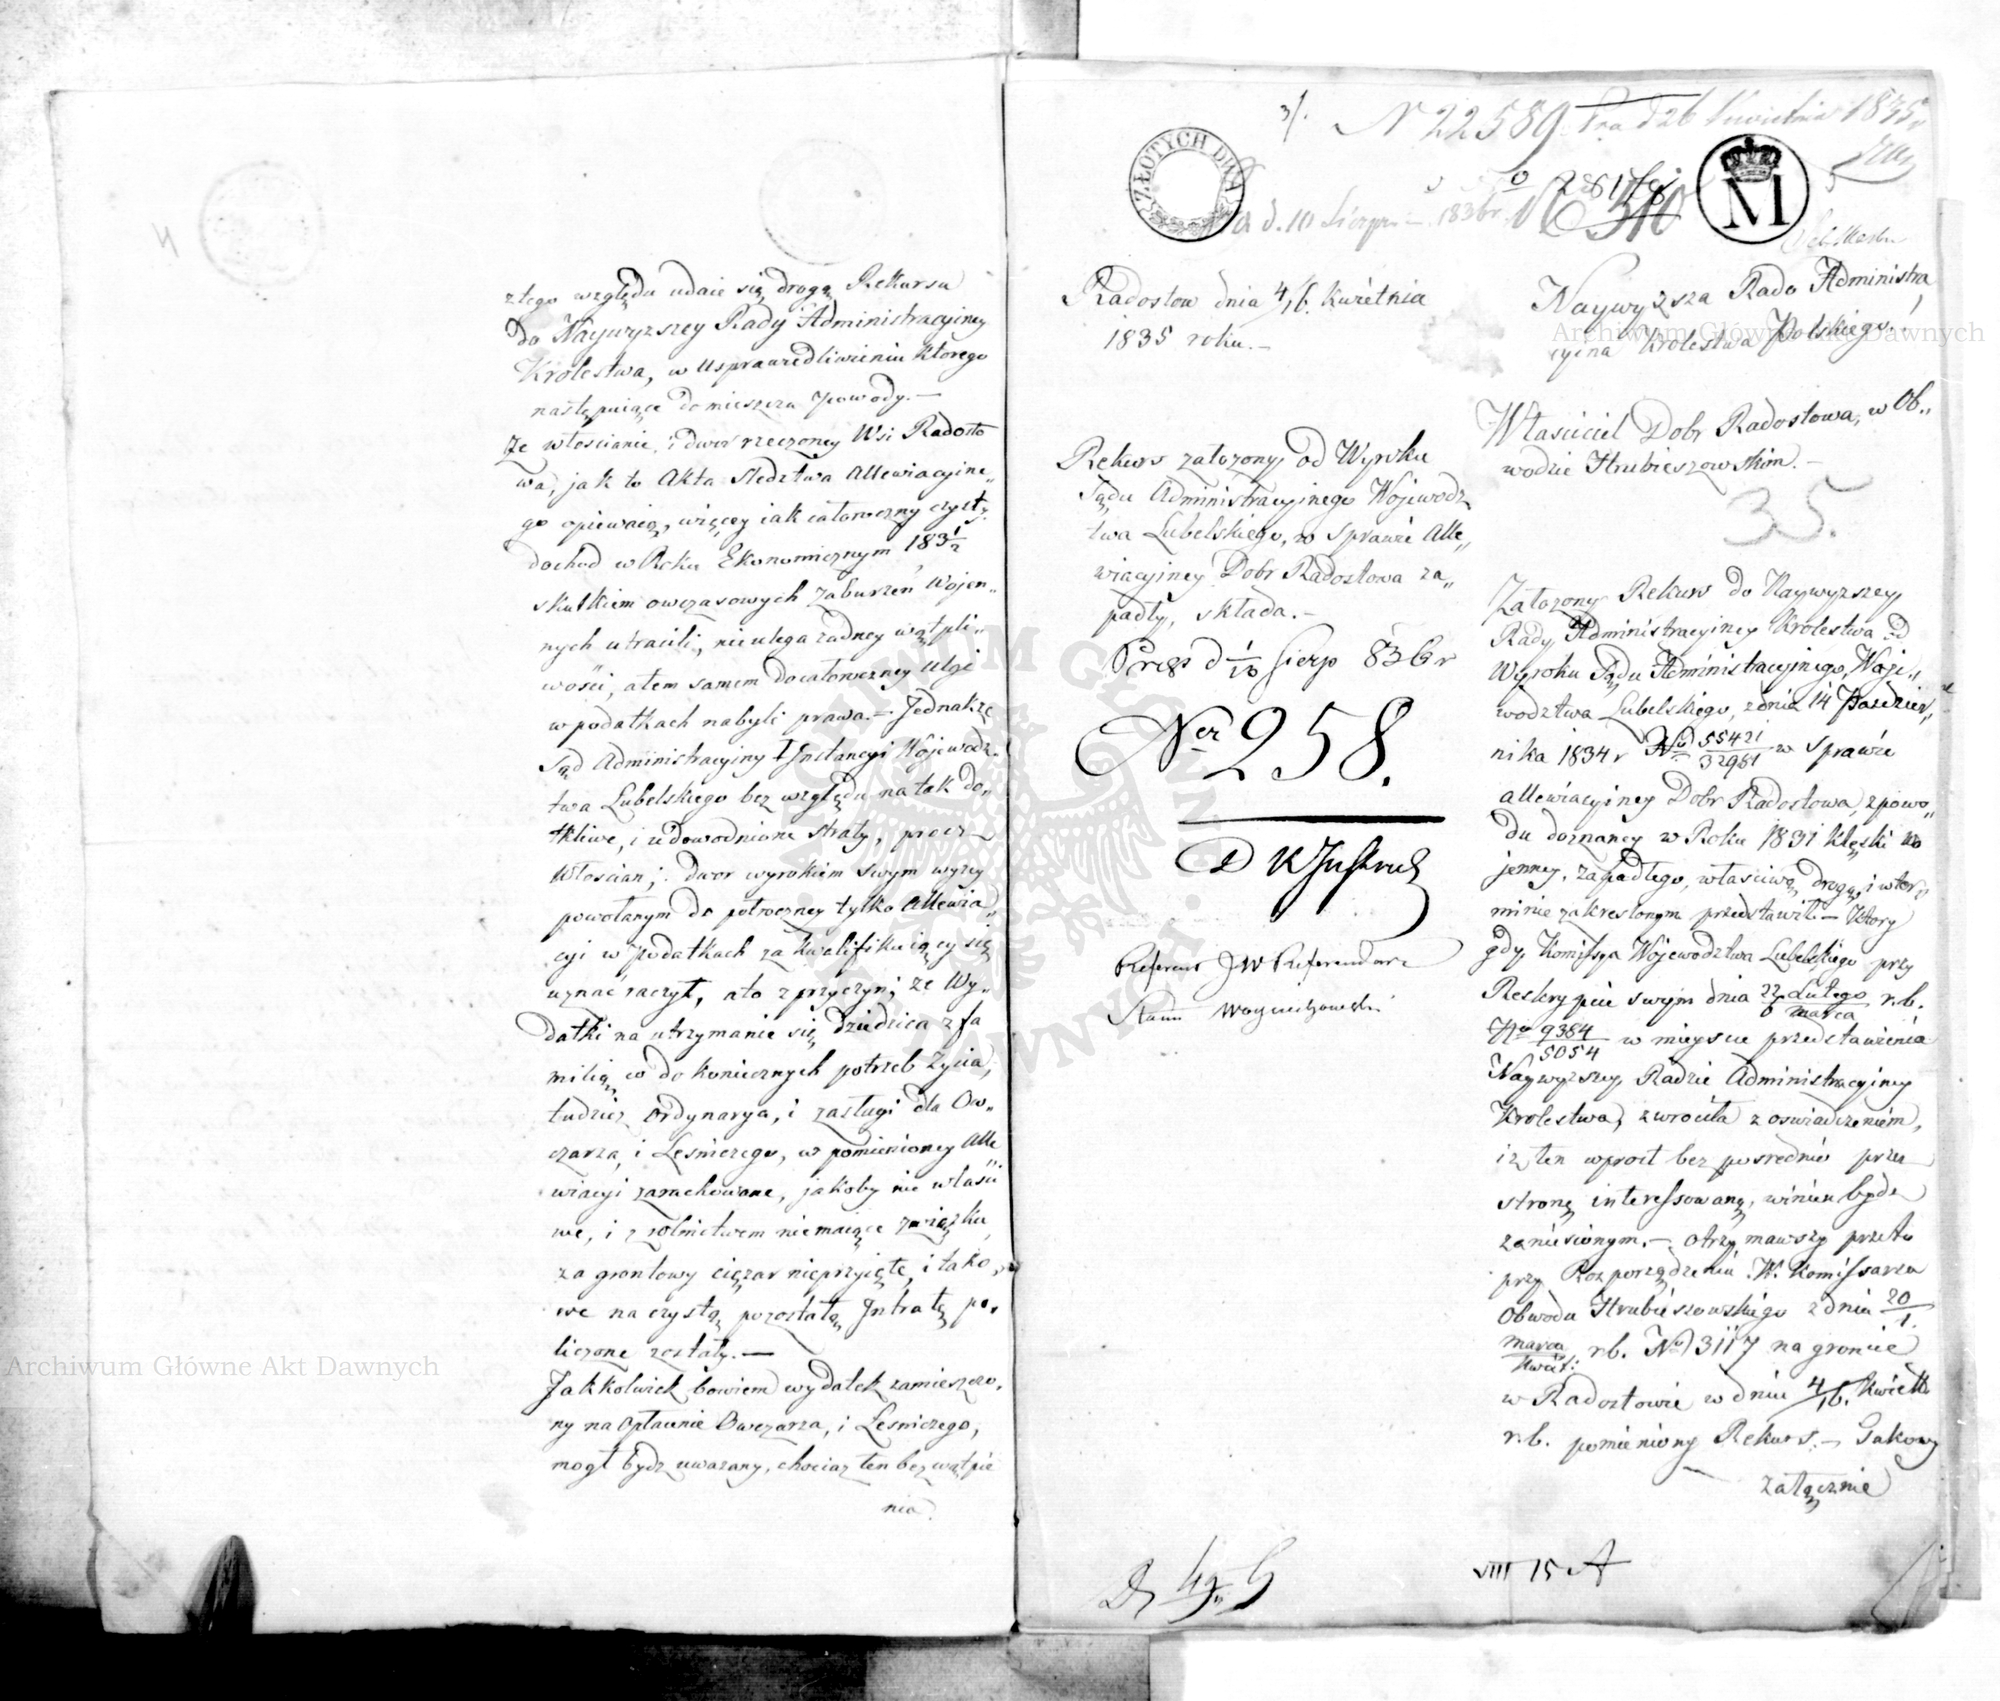 złego względu udaie się drogą Rekursu
do Naywyższey Rady Administracyiney
Krolestwa, w usprawiedliwieniu ktorego
następuiące domieszcza powody.—
Że włościanie i dwor rzeczoney Wsi Radosto
wa, jak to Akta Sledztwa Allewiacyine„
go opiewaią, więcey iak całoroczny czysty
dochod w Roku Ekonomicznym 183½
skutkiem owczasowych zaburzeń Wojen„
nych utracili, nieulega żadney wątpli„
wości, a tem samem do całoroczney Ulgi
w podatkach nabyli prawa.— Jednakże
Sąd Administracyiny I Instancyi Wojewodz„
twa Lubelskiego bez względu na tak do„
tkliwe, i udowodnione straty, procz
włościan, Dwor wyrokiem swym wyżey
powołanym do połroczney tylko Allewia„
cyi w podatkach za kwalifikuiący się
uznać raczył, a to z przyczyn, że Wy„
datki na utrzymanie się dziedzica z fa
milią co do koniecznych potrzeb życia,
tudzież Ordynarya, i zasługi dla Ow„
czarza, i Leśniczego, w pomienioney Alle
wiacyi zarachowane, jakoby nie właści
we, i z rolnictwem niemaiące związku,
za grontowy ciężar nieprzyięte, i tako„
we na czystą pozostałą Intratę po„
liczone zostały.—
Jakkolwiek bowiem wydatek zamieszczo„
ny na opłacenie Owczarza, i Lesniczego,
mogł bydz uważany, chociaż ten bez wątpie
nia
3/.
N 22589 Pra d 26 Kwietnia 1835
ZŁOTYCH DWA
M
d. 10 Sierpn 1836 r.
510
Radostow dnia 4/16 Kwietnia
1835 roku.—
Rekurs założony od Wyroku
Sądu Administracyinego Wojewodz
twa Lubelskiego, w Sprawie Alle„
wiacyiney Dobr Radostowa za„
padły, składa.—
Prez d 1/13 Sierp 836 r
Ner 258.
Referent JW Referendarz
Stanu Woyciechowski
Naywyższa Rado Administra
cyina Krolestwa Polskiego!
Właściciel Dobr Radostowa, w Ob„
wodzie Hrubieszowskim.—
35.
Założony Rekurs do Naywyższey
Rady Administracyiney Krolestwa od
Wyroku Sądu Administracyinego Woje„
wodztwa Lubelskiego, z dnia 14 Pazdzier„
nika 1834 r No 55421/32981 w Sprawie
allewiacyiney Dobr Radostowa, z powo„
du doznaney w Roku 1831 klęski wo
jenney, zapadłego, właściwą drogą, i w ter„
minie zakreslonym przedstawił.— Ktory
gdy Komissya Wojewodztwa Lubelskiego przy
Reskrypcie swym dnia 22 Lutego/6 Marca r.b.
No 9384/5054 w mieysce przedstawienia
Naywyższey Radzie Administracyiney
Krolestwa, zwrociła z oswiadczeniem,
iż ten wprost bez posrednio przez
stronę interessowaną, winien bydź
zaniesionym.— otrzymawszy przeto
przy Rozporządzeniu W. Komissarza
Obwodu Hrubieszowskiego z dnia 20/1.
Marca/Kwiet: r.b. No 3117 na groncie
w Radostowie w dniu 4/16. Kwiet
r.b. pomieniony Rekurs.— Takowy
załącznie
VIII 15 A
Archiwum Główne Akt Dawnych
Archiwum Główne Akt Dawnych
ARCHIWUM GŁÓWNE AKT DAWNYCH